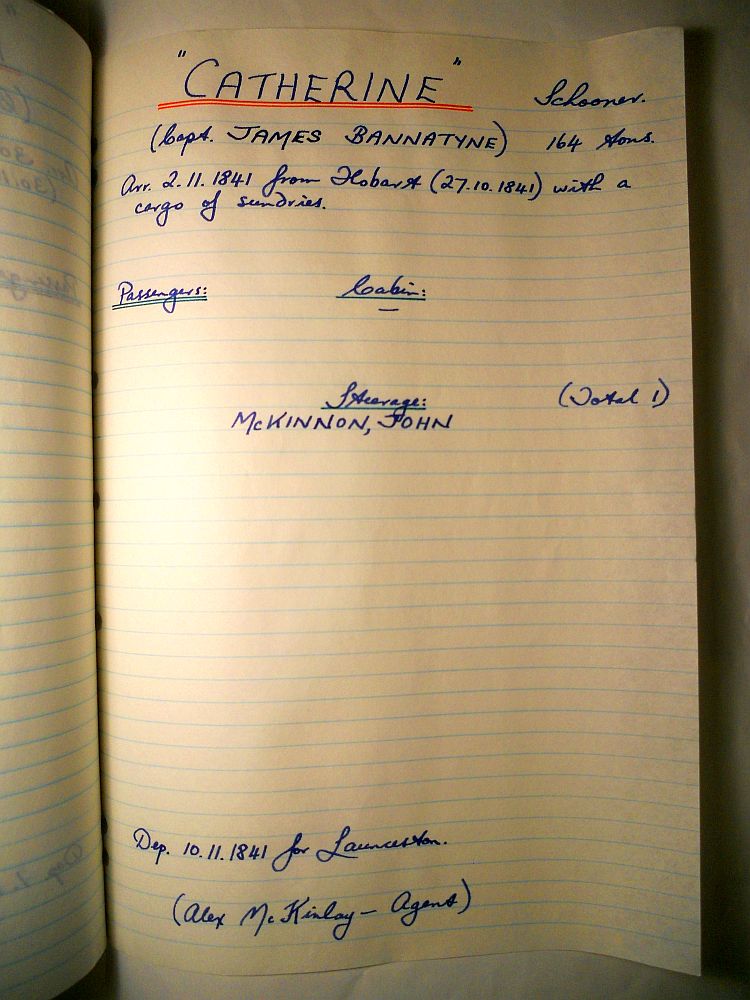 "CATHERINE" Schooner.
(Capt. JAMES BANNATYNE) 164 tons.
Arr. 2.11.1841 from Hobart (27.10.1841) with a
cargo of sundries.
Passengers: Cabin:
—
Steerage: (Total 1)
McKINNON, JOHN
Dep. 10.11.1841 for Launceston.
(Alex McKinlay — Agent)